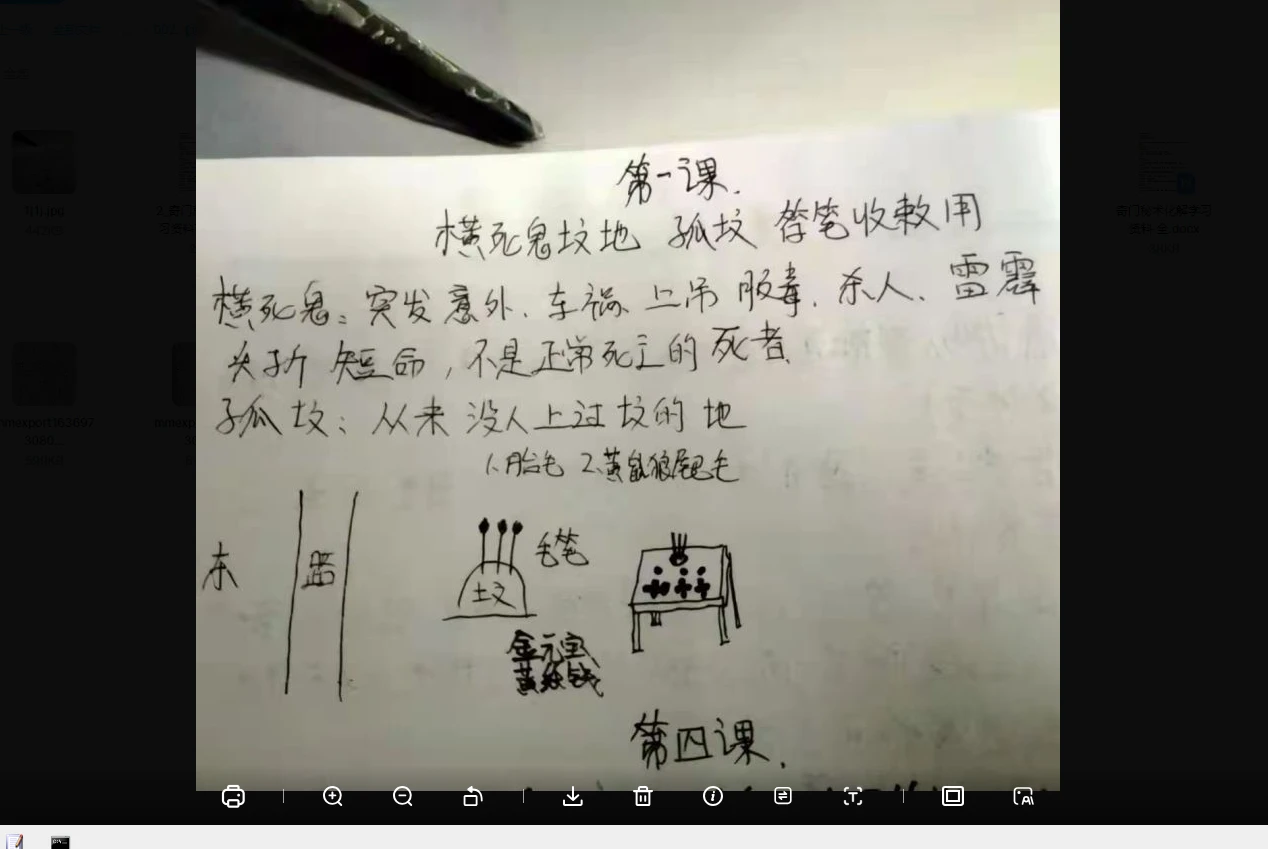 第一课.
横死鬼坟地 孤坟 笔收敕用
横死鬼: 突发意外、车祸 上吊 服毒、杀人、雷霹
夭折 短命, 不是正常死亡的死者
孤坟: 从来没人上过坟的地
1、胎毛 2、黄鼠狼尾巴毛
东 路 坟 毛笔
金元宝
黄纸钱
第四课.